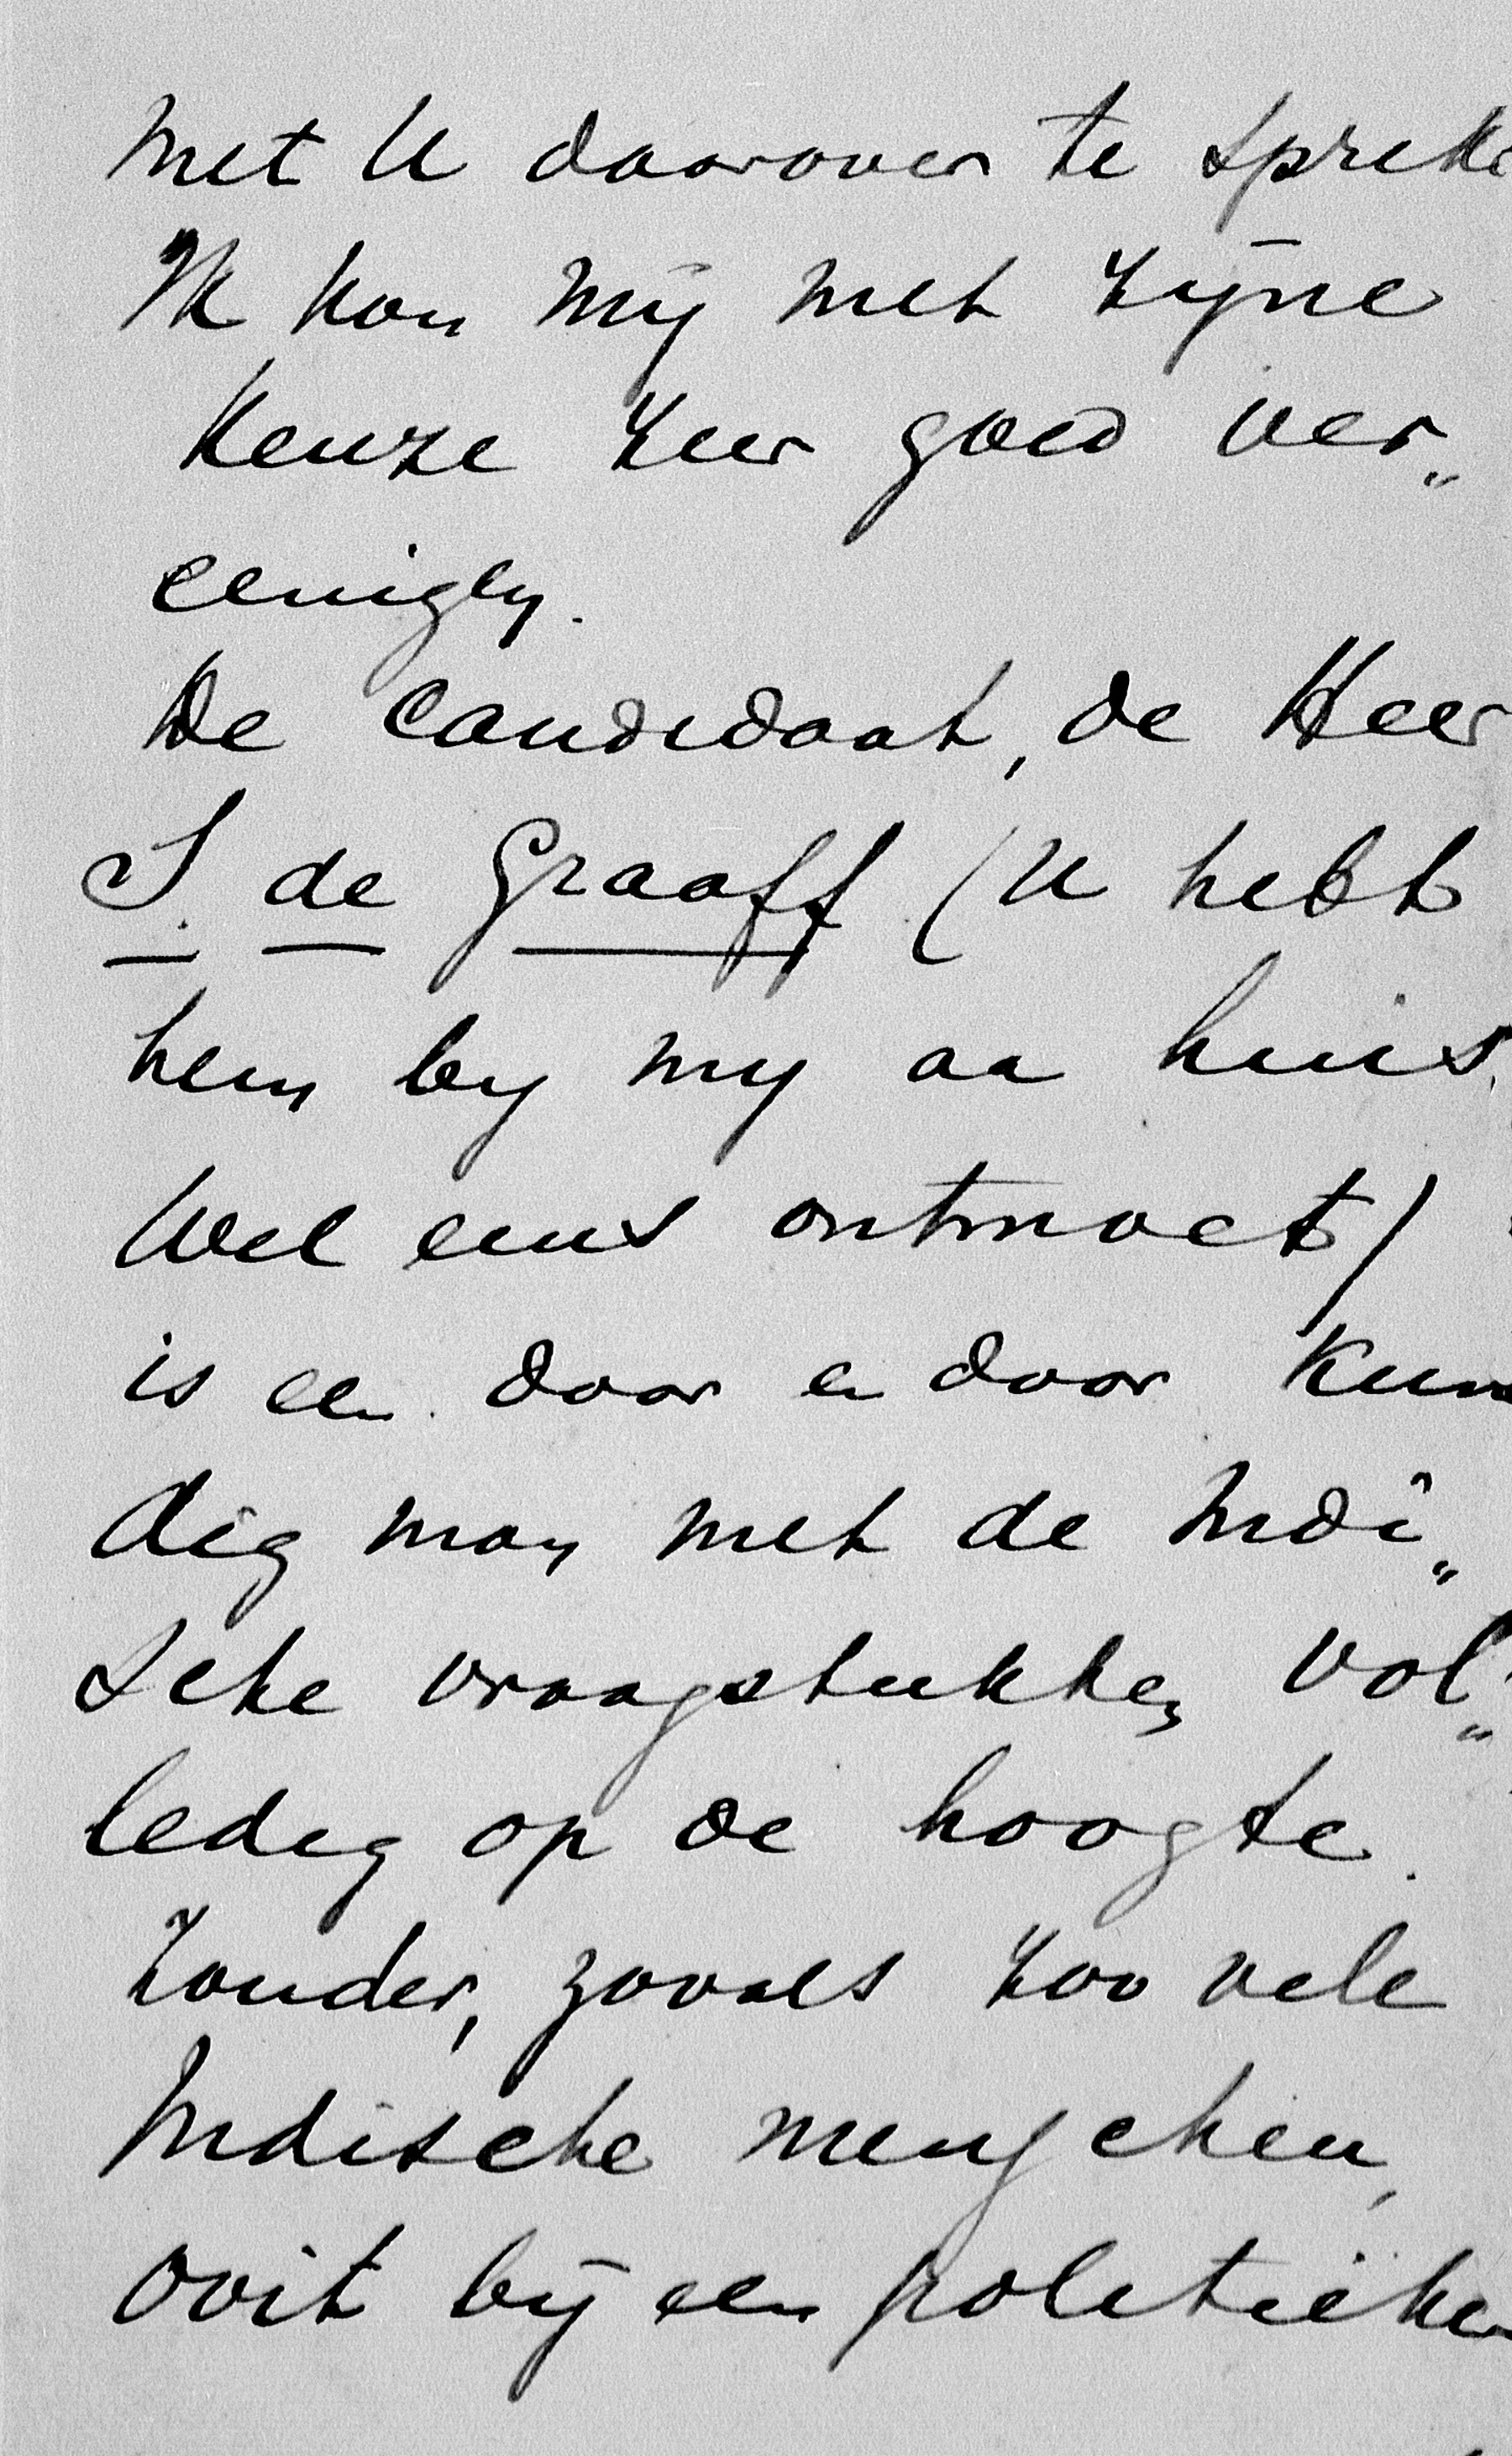 met U daarover te spreke
Ik kon mij met zijne
keuze zeer goed ver„
eenigen.
De candidaat, de Heer
S. de Graaff (U hebt
hem by my aa huis
wel eens ontmoet)
is een door en door kun
dig man met de Indi„
sche vraagstukken vol„
ledig op de hoogte.
Zonder, zooals zoo vele
Indische menschen,
ooit bij een politieke